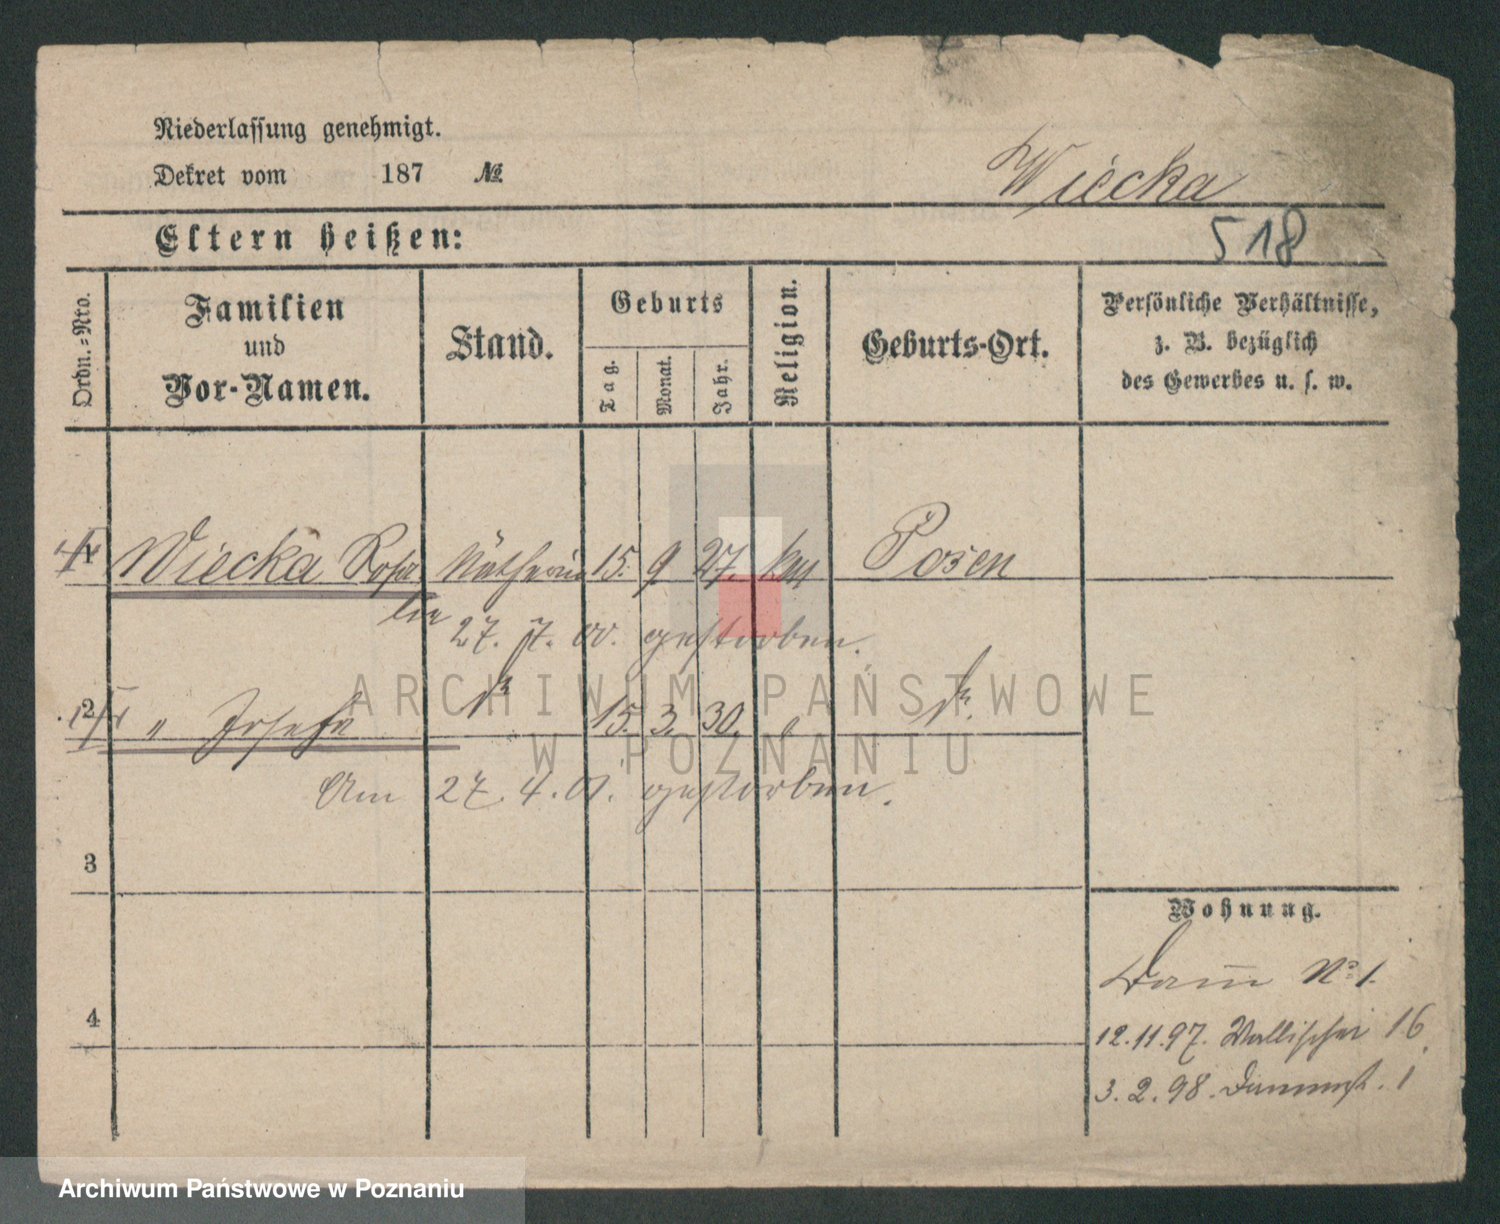 Niederlassung genehmigt.
Dekret vom 187 №
Wiecka
Eltern heißen:
518
Ordn.-Nro.
Familien und Vor-Namen.
Stand.
Geburts
Tag. Monat. Jahr.
Religion.
Geburts-Ort.
Persönliche Verhältnisse,
z. B. bezüglich
des Gewerbes u. s. w.
1 Wiecka Rosa Nätherin 15. 9 27. kath Posen
lie
27. 7. 00. gestorben.
2 " Josefa do 15. 3. 30. " do.
Am 27. 4. 01. gestorben.
3
4
Wohnung.
Damm No 1.
12.11.97. Wallischei 16
3.2.98. Dammst. 1
ARCHIWUM PAŃSTWOWE
W POZNANIU
Archiwum Państwowe w Poznaniu